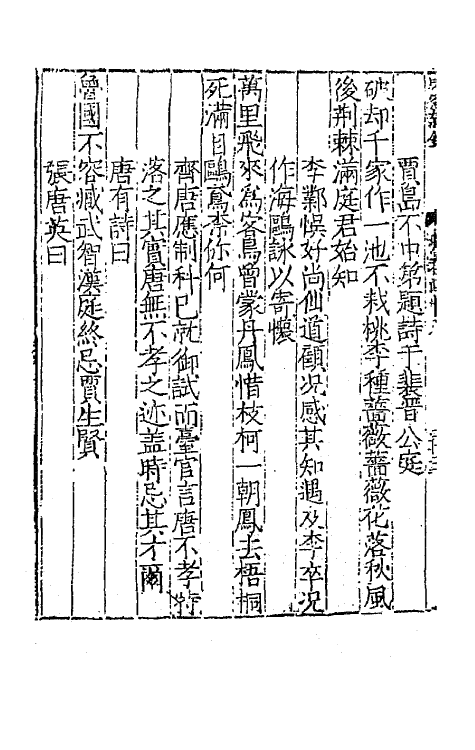 賈島不中第題詩于裴晉公庭
破却千家作一池不栽桃李種薔薇薔薇花落秋風
後荆棘滿庭君始知
李鄴悞好尚仙道顧况感其知遇及李卒况
作海鷗詠以寄懷
萬里飛來爲客鳥曾蒙丹鳳惜枝柯一朝鳳去梧桐
死滿目鴟鳶奈你何
齊唐應制科已就御試而臺官言唐不孝特
落之其實唐無不孝之迹盖時忌其才爾
唐有詩曰
魯國不容臧武智漢庭終忌賈生賢
張唐英曰